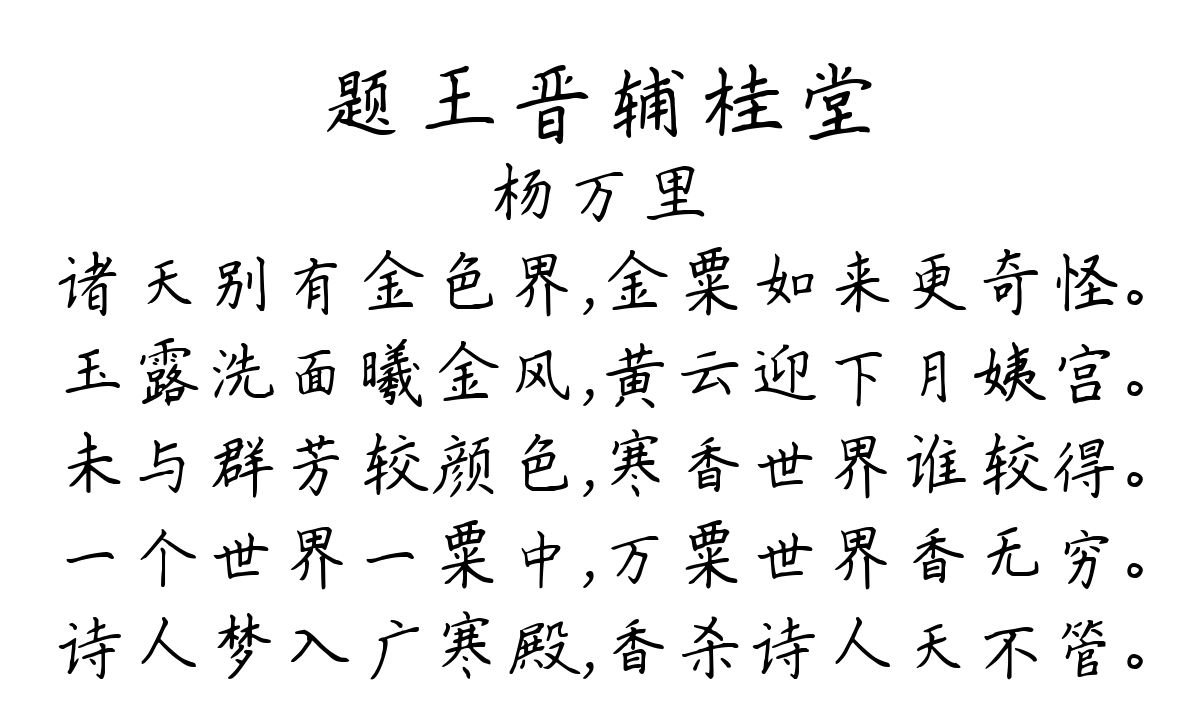 题王晋辅桂堂
杨万里
诸天别有金色界,金粟如来更奇怪。
玉露洗面曦金风,黄云迎下月姨宫。
未与群芳较颜色,寒香世界谁较得。
一个世界一粟中,万粟世界香无穷。
诗人梦入广寒殿,香杀诗人天不管。